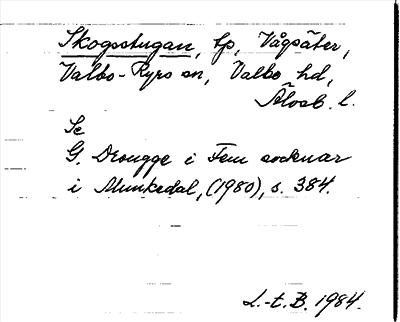 Skogsstugan, tp, Vågsäter,
Valbo-Ryrs sn, Valbo hd,
Älvsb. l.
Se
G. Drougge i Fem socknar
i Munkedal, (1980), s. 384.
L.-t. B. 1984.